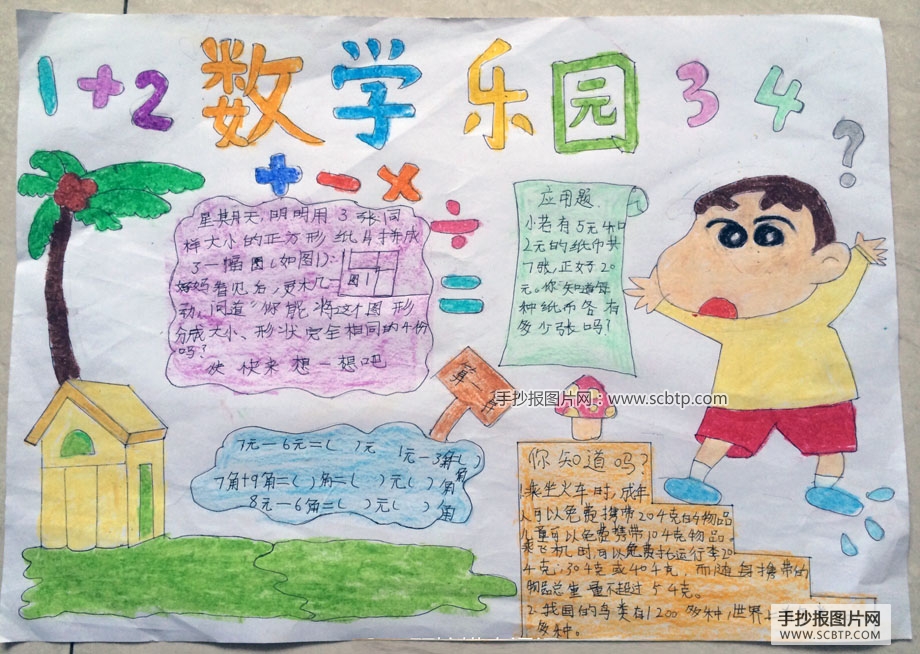 1+2 数学乐园 3 4
?
+ - × ÷ =
星期天,明明用3张同
样大小的正方形纸片拼成
了一幅图(如图1):
图1
妈妈看见后,灵机一
动,问道"你能将这个图形
分成大小、形状完全相同的4份
吗?
快快来想一想吧
应用题.
小若有5元和
2元的纸币共
7张,正好20
元.你知道每
种纸币各有
多少张吗?
算一
手抄报图片网:www.scbtp.com
7元-6元=( )元 1元-3角=( )角
7角+9角=( )角=( )元( )角
8元-6角=( )元( )角
你知道吗?
1.乘坐火车时,成年
人可以免费携带204克的物品
儿童可以免费携带104克物品。
乘飞机时可以免费托运行李20
4克;304克或404克,而随身携带的
物品总重量不超过54克。
2.我国的鸟类有1200多种,世界
多种。
手抄报图片网
WWW.SCBTP.COM